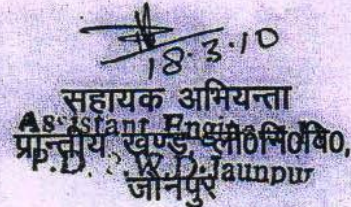 18.3.10
सहायक अभियन्ता
Assistant Engineer
प्रान्तीय खण्ड लो0नि0वि0,
P.D. P.W.D. Jaunpur
जौनपुर